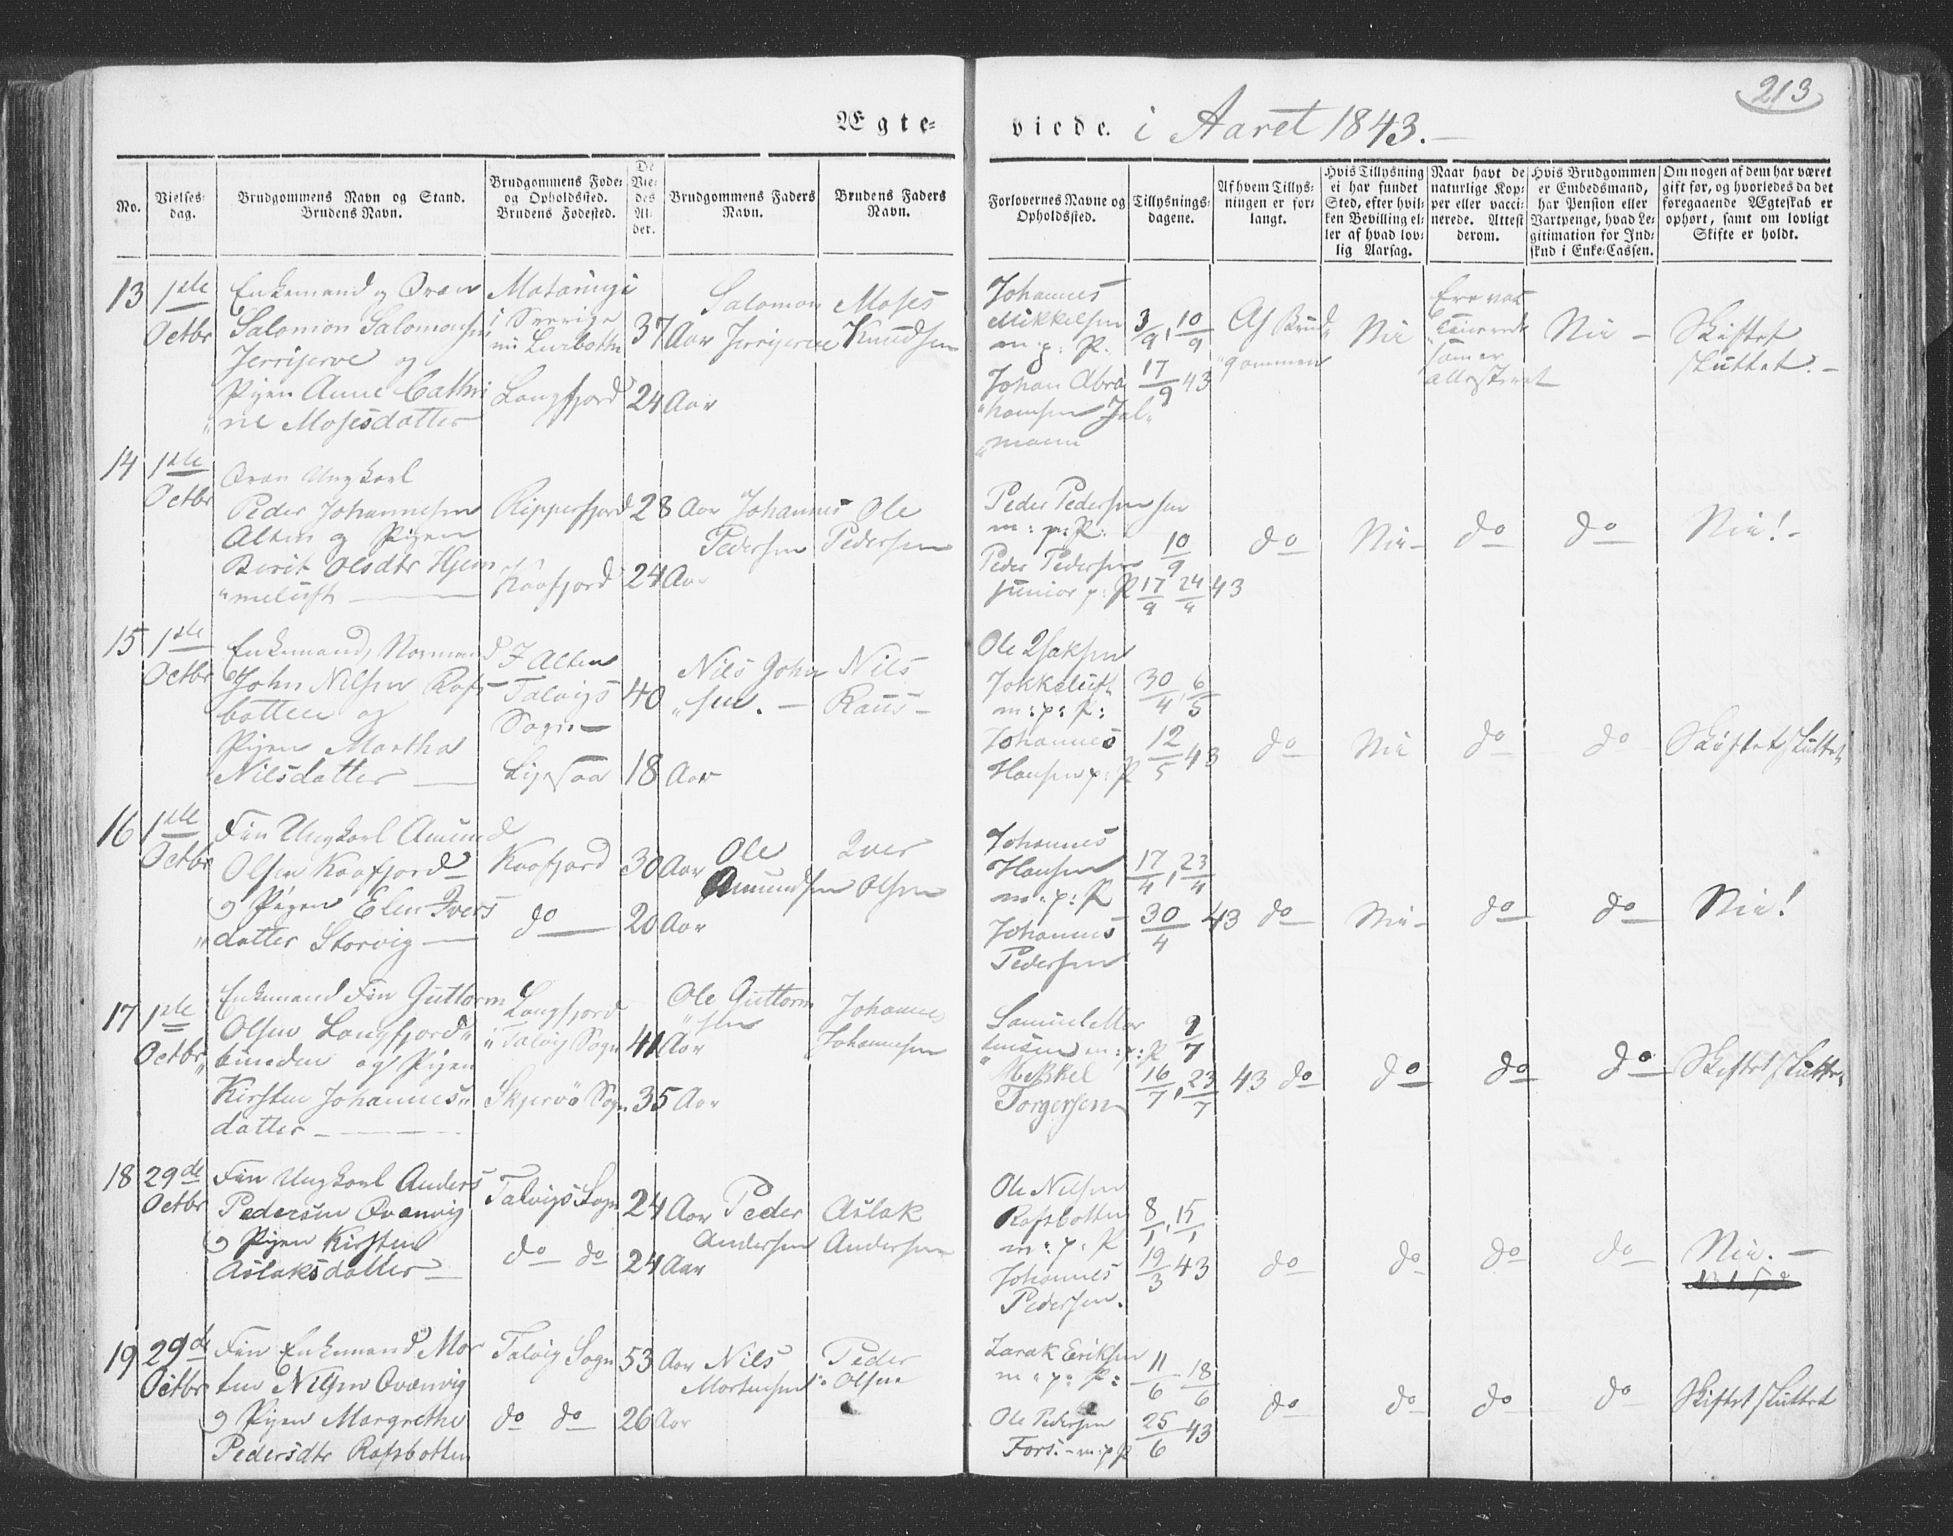 213
Ægte-
viede. i Aaret 1843.-
No.
Vielses-
dag.
Brudgommens Navn og Stand.
Brudens Navn.
Brudgommens Føde-
og Opholdssted.
Brudens Fødested.
De
Vie-
des
Al-
der.
Brudgommens Faders
Navn.
Brudens Faders
Navn.
Forlovernes Navne og
Opholdssted.
Tillysnings-
dagene.
Af hvem Tillys-
ningen er for-
langt.
Hvis Tillysning
ei har fundet
Sted, efter hvil-
ken Bevilling el-
ler af hvad lov-
lig Aarsag.
Naar havt de
naturlige Kop-
per eller vacci-
nerede. Attest
derom.
Hvis Brudgommen
er Embedsmand,
har Pension eller
Vartpenge, hvad Le-
gitimation for Ind-
skud i Enke-Cassen.
Om nogen af dem har været
gift før, og hvorledes da det
foregaaende Ægteskab er
ophørt, samt om lovligt
Skifte er holdt.
13
1ste
Octbr
Enkemand og Qvæn
Salomon Salomonsen
Jerrijerve og
Pigen Anne Cathri
"ne Mosesdatter
Mataringi
i Sverige
Langfjord
37 Aar
24 Aar
Salomon
Jerrijerve
Moses
Knudsen
Johannes
Mikkelsen
m: p: P:
Johan Abra
"hamsen Jal"
"mann
3/9, 10/9
17/9 43
Af Brud
"gommen
Nei
Ere vac
cinerede
som er
attesteret
Nei -
Skiftet
sluttet. -
14
1ste
Octbr
Qvæn Ungkarl
Peder Johannesen
Alten og Pigen
Berit Olsdtr Hjem
"meluft
Ripperfjord
Kaafjord
28 Aar
24 Aar
Johannes
Pedersen
Ole
Pedersen
Peder Pedersen sen
m: p: P:
Peder Pedersen
junior p: P
10/9
17/9 24/9 43
do
Nei -
do
do
Nei! -
15
1ste
Octbr
Enkemand, Normand
John Nilsen Rafs
botten og
Pigen Martha
Nilsdatter
I Alten
Talvigs
Sogn -
40
18 Aar
Nils John
"sen. -
Nils
Ole Isaksen
Jokkeluft
m: p: P:
Johannes
Hansen p: P
30/4, 6/5
12/5 43
do
Nei
do
do
Skiftet sluttet
16
1ste
Octbr
Fin Ungkarl Amund
Olsen Kaafjord
og Pigen Elen Ivers
"datter Storvig
Kaafjord
do
30 Aar
20 Aar
Ole
Amundsen
Iver
Olsen
Johannes
Hansen
m: p: P
Johannes
Pedersen
17/4, 23/4
30/4 43
do
Nei -
do
do
Nei!
17
1ste
Octbr
Enkemand Fin Guttorm
Olsen Langfjord"
"bunden og Pigen
Kirsten Johannes"
datter
Langfjord
i Talvig Sogn
Skjervø Sogn
41 Aar
35 Aar
Ole Guttorm
"sen
Johannes
Johannesen
Samuel Mor
"tensen m: p: P
Mekkel
Torgersen
9/7
16/7, 23/7 43
do
do
do
do
Skiftet sluttet
18
29de
Octbr
Fin Ungkarl Anders
Pedersen Qvænvig
og Pigen Kirsten
Aslaksdatter
Talvigs Sogn
do do
24 Aar
24 Aar
Peder
Andersen
Aslak
Andersen
Ole Nilsen
Rafsbotten
m: p: P
Johannes
Pedersen.
8/1, 15/1
19/3 43
do
do
do
do
Nei. -
19
29de
Octbr
Fin Enkemand Mor
ten Nilsen Qvænvig
og Pigen Margrethe
Pedersdtr Rafsbotten
Talvig Sogn
do do
53 Aar
26 Aar
Nils
Mortensen
Peder
Olsen
Zarak Eriksen
m: p: P:
Ole Pedersen
Fors. - m: p P
11/6 18/6
25/6 43
do
do
do
do
Skiftet sluttet